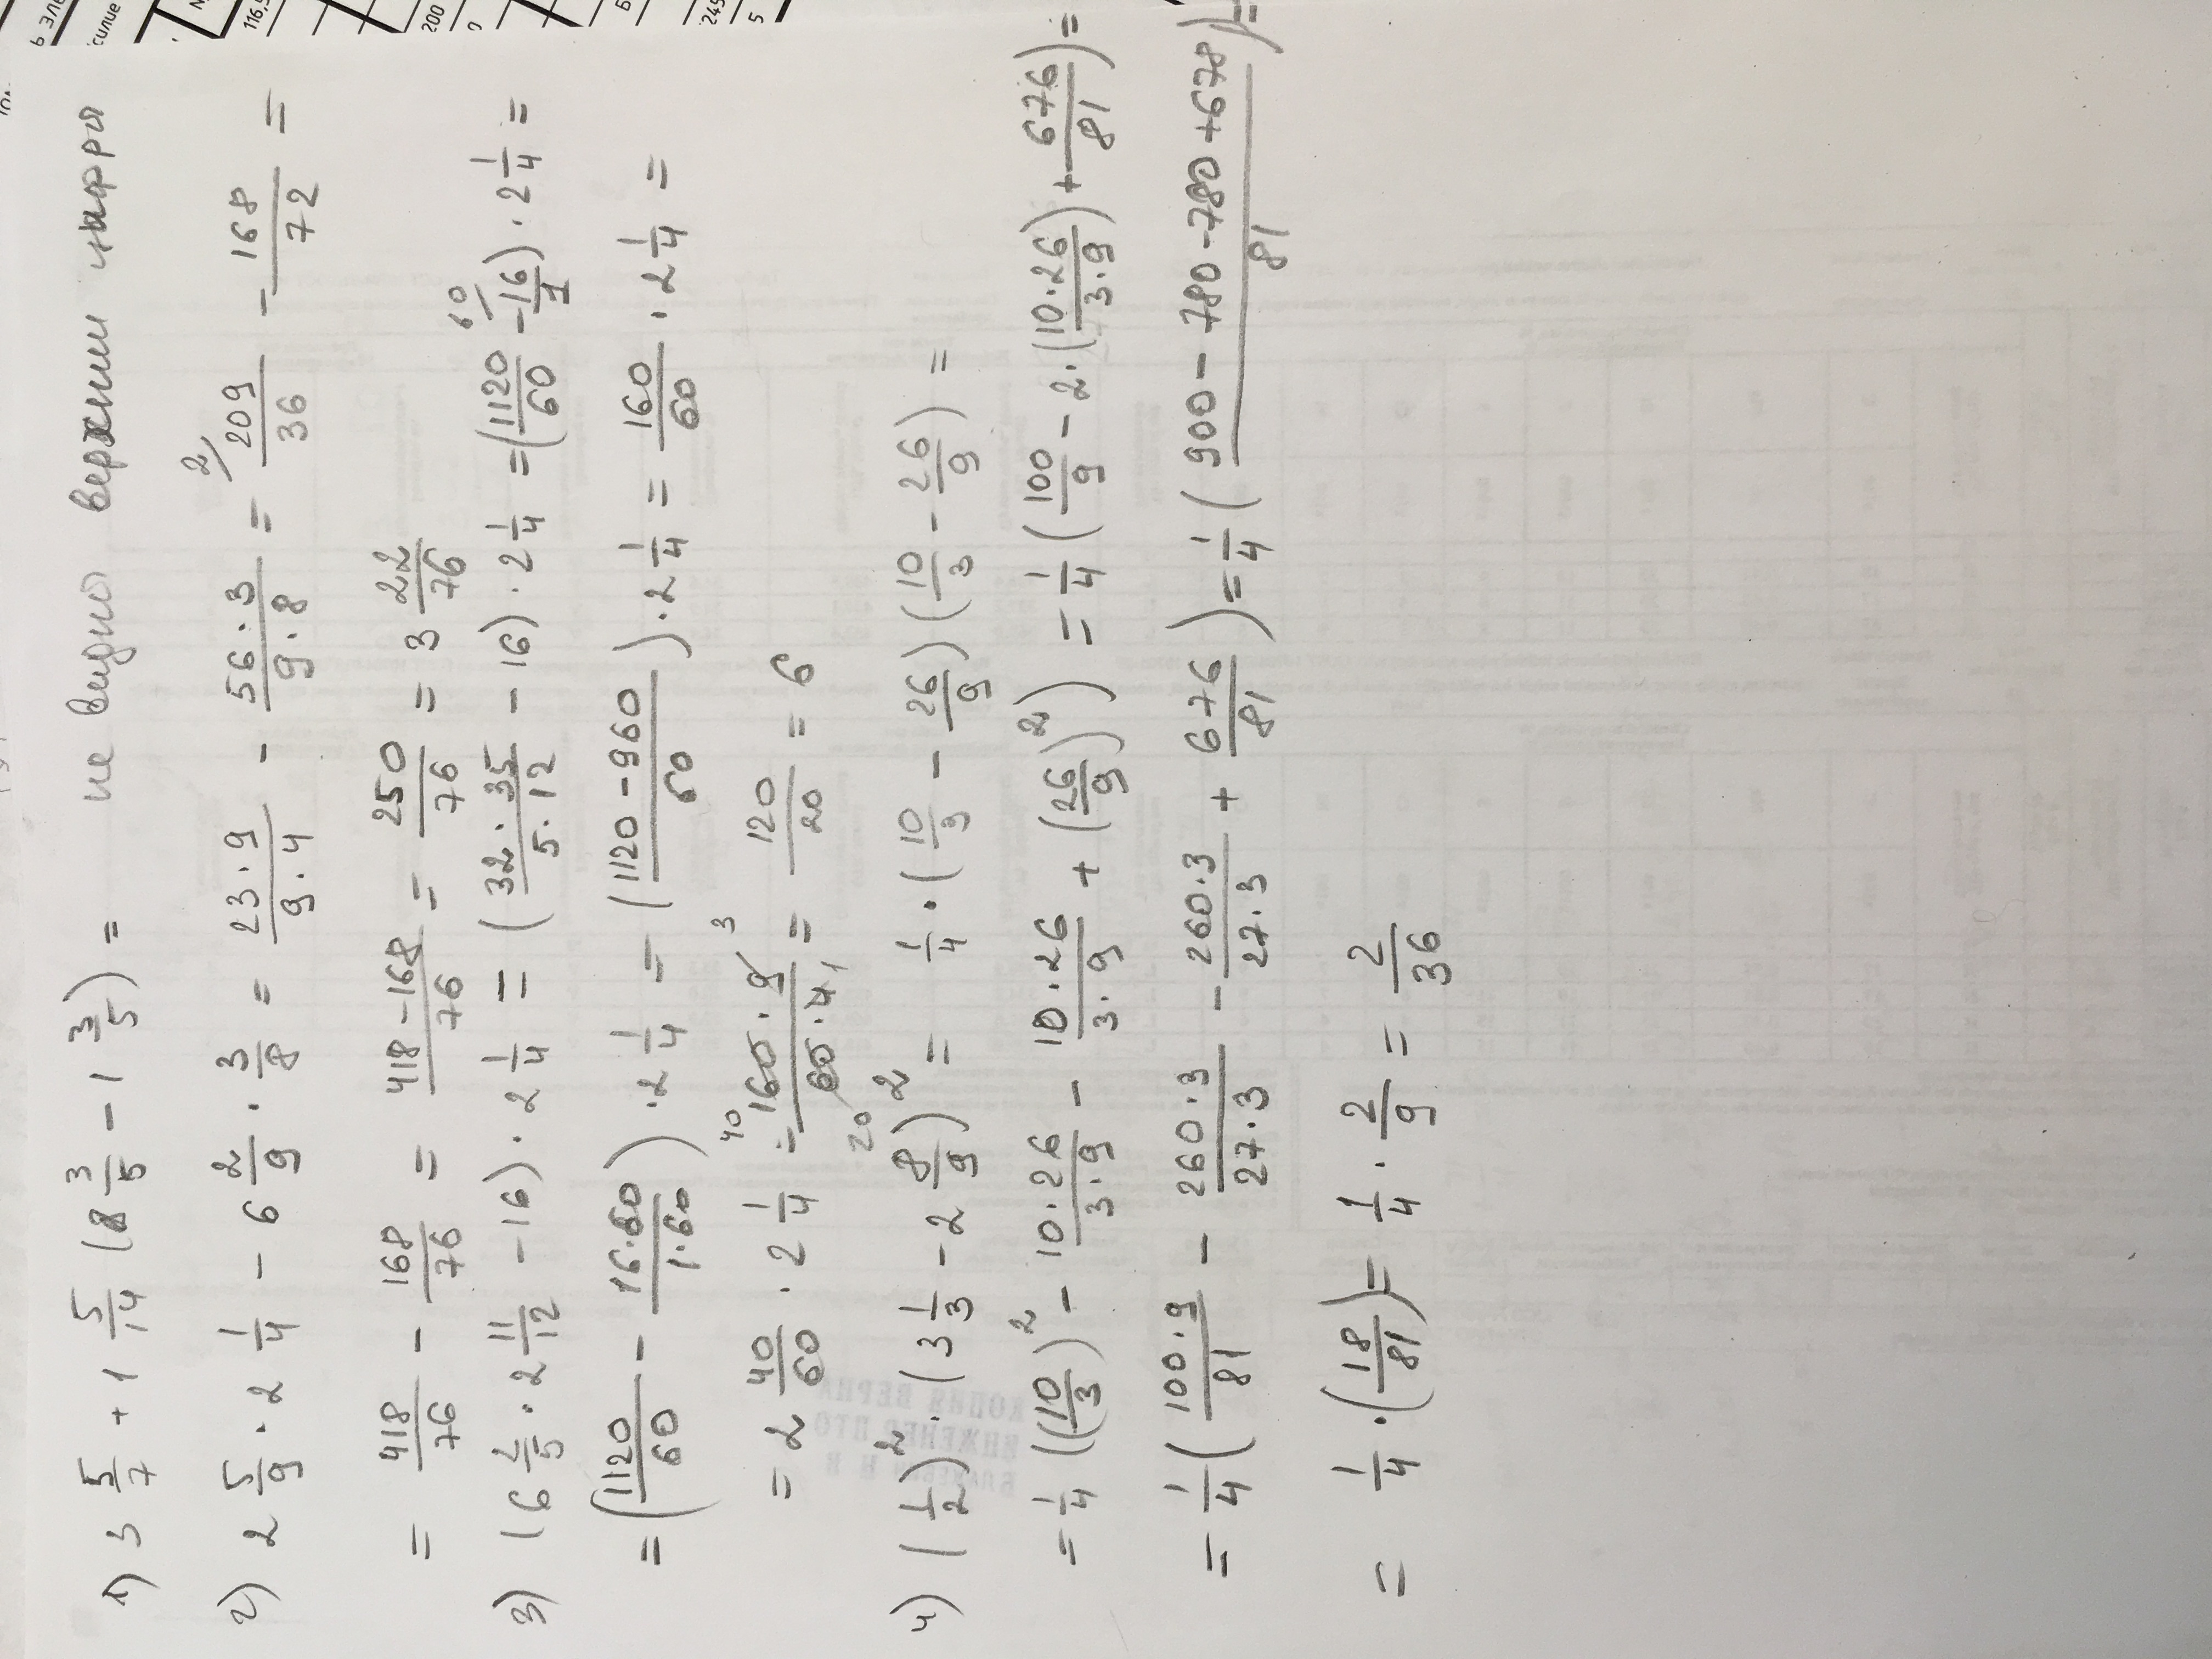 1) 3 5/7 + 1 5/14 (8 3/5 - 1 3/5) = не видно верхнии цифры
2) 2 5/9 · 2 1/4 - 6 2/9 · 3/8 = 23·9/9·4 - 56·3/9·8 = 2/ 209/36 - 168/72 =
= 418/76 - 168/76 = 418-168/76 = 250/76 = 3 22/76
3) (6 2/5 · 2 11/12 - 16) · 2 1/4 = (32·35/5·12 - 16) · 2 1/4 = (1120/60 - 60/ 16/1) · 2 1/4 =
= (1120/60 - 16·60/1·60) · 2 1/4 = (1120-960/60) · 2 1/4 = 160/60 · 2 1/4 =
= 2 40/60 · 2 1/4 = 40 160·9 3/20 60·4 1 = 120/20 = 6
4) (1/2)² · (3 1/3 - 2 8/9)² = 1/4 · (10/3 - 26/9)(10/3 - 26/9) =
= 1/4 ((10/3)² - 10·26/3·9 - 10·26/3·9 + (26/9)²) = 1/4 (100/9 - 2·(10·26/3·9) + 676/81) =
= 1/4 (100·9/81 - 260·3/27·3 - 260·3/27·3 + 676/81) = 1/4 (900-780-780+678/81) =
= 1/4 · (18/81) = 1/4 · 2/9 = 2/36